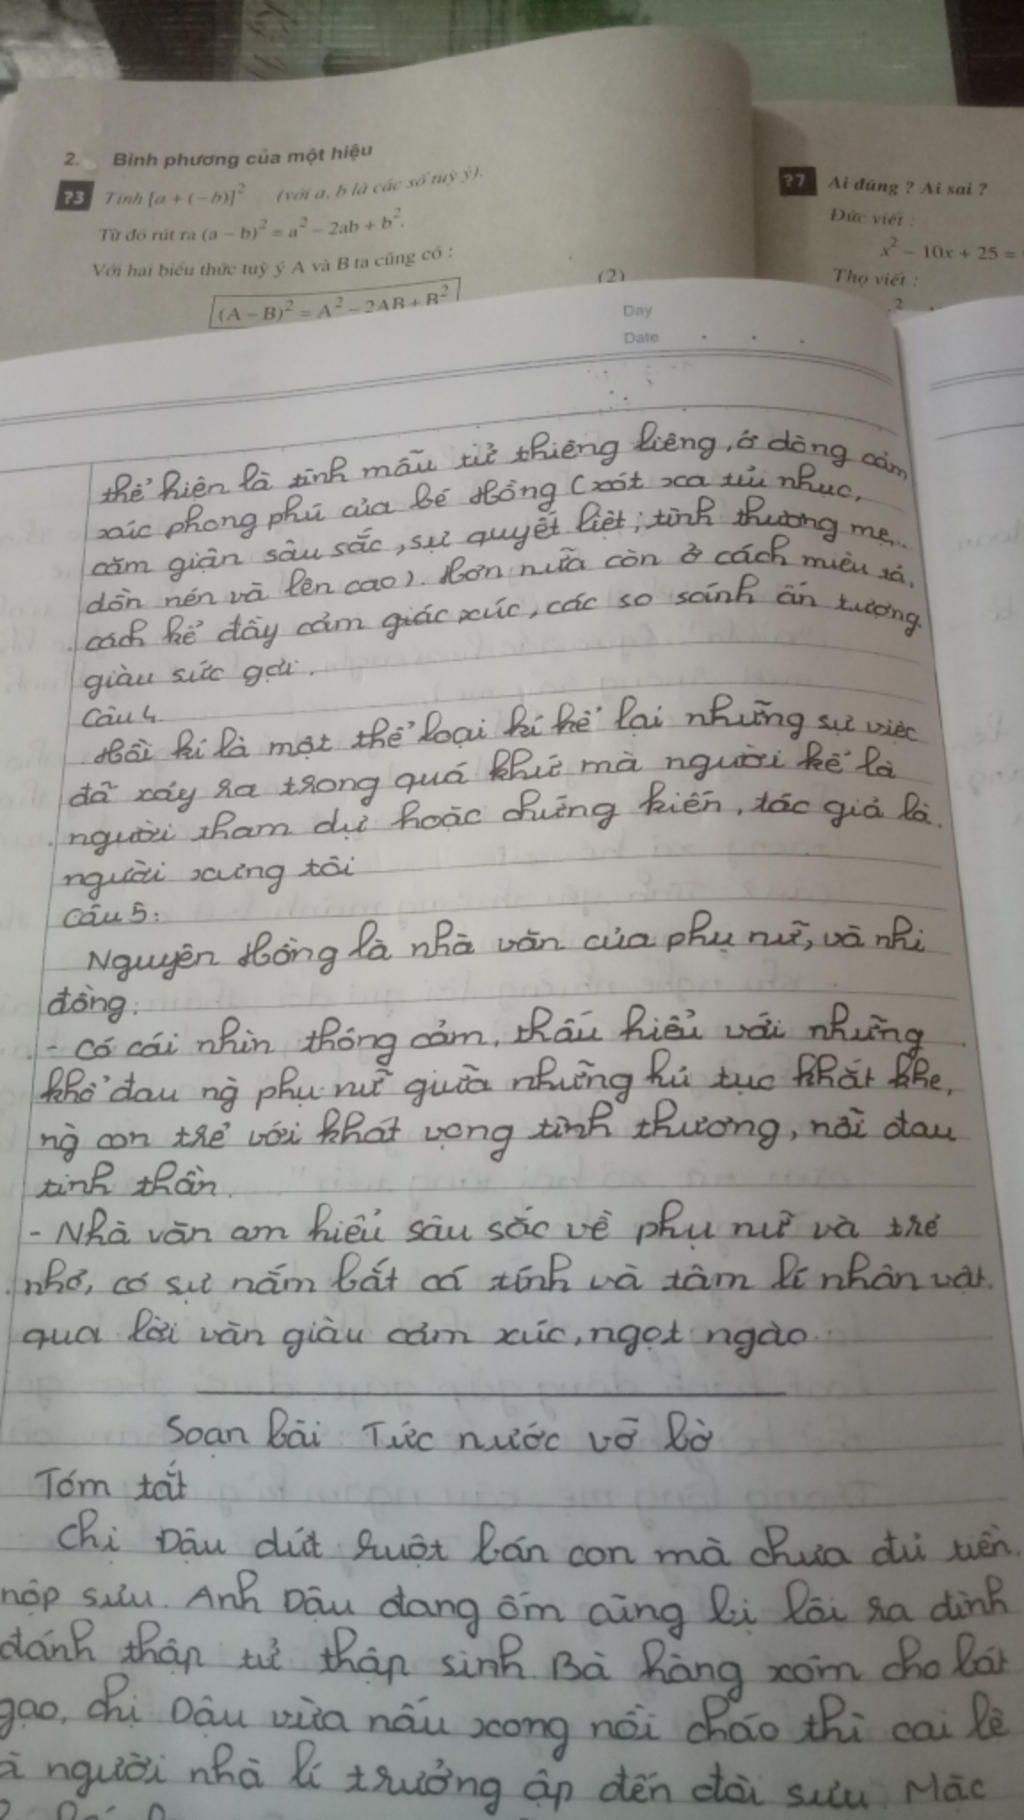 2. Bình phương của một hiệu
?3 Tính [a + (−b)]² (với a, b là các số tuỳ ý).
Từ đó rút ra (a − b)² = a² − 2ab + b².
Với hai biểu thức tuỳ ý A và B ta cũng có :
(A − B)² = A² − 2AB + B² (2)
?7 Ai đúng ? Ai sai ?
Đức viết :
x² − 10x + 25 =
Thọ viết :
Day
Date
thể hiện là tình mẫu tử thiêng liêng, ở dòng cảm
xúc phong phú của bé Hồng (xót xa tủi nhục,
căm giận sâu sắc, sự quyết liệt; tình thương mẹ...
dồn nén và lên cao). Hơn nữa còn ở cách miêu tả,
cách kể đầy cảm giác xúc, các so sánh ấn tượng,
giàu sức gợi.
Câu 4.
Hồi kí là một thể loại kí kể lại những sự việc
đã xảy ra trong quá khứ mà người kể là
người tham dự hoặc chứng kiến, tác giả là
người xưng tôi
Câu 5:
Nguyên Hồng là nhà văn của phụ nữ, và nhi
đồng:
- Có cái nhìn thông cảm, thấu hiểu với những
khổ đau ng` phụ nữ giữa những hủ tục khắt khe,
ng` con trẻ với khát vọng tình thương, nỗi đau
tinh thần.
- Nhà văn am hiểu sâu sắc về phụ nữ và trẻ
nhỏ, có sự nắm bắt cá tính và tâm lí nhân vật
qua lời văn giàu cảm xúc, ngọt ngào.
Soạn bài Tức nước vỡ bờ
Tóm tắt
Chị Dậu dứt ruột bán con mà chưa đủ tiền
nộp sưu. Anh Dậu đang ốm cũng bị lôi ra đình
đánh thập tử thập sinh. Bà hàng xóm cho bát
gạo, chị Dậu vừa nấu xong nồi cháo thì cai lệ
à người nhà lí trưởng ập đến đòi sưu. Mặc